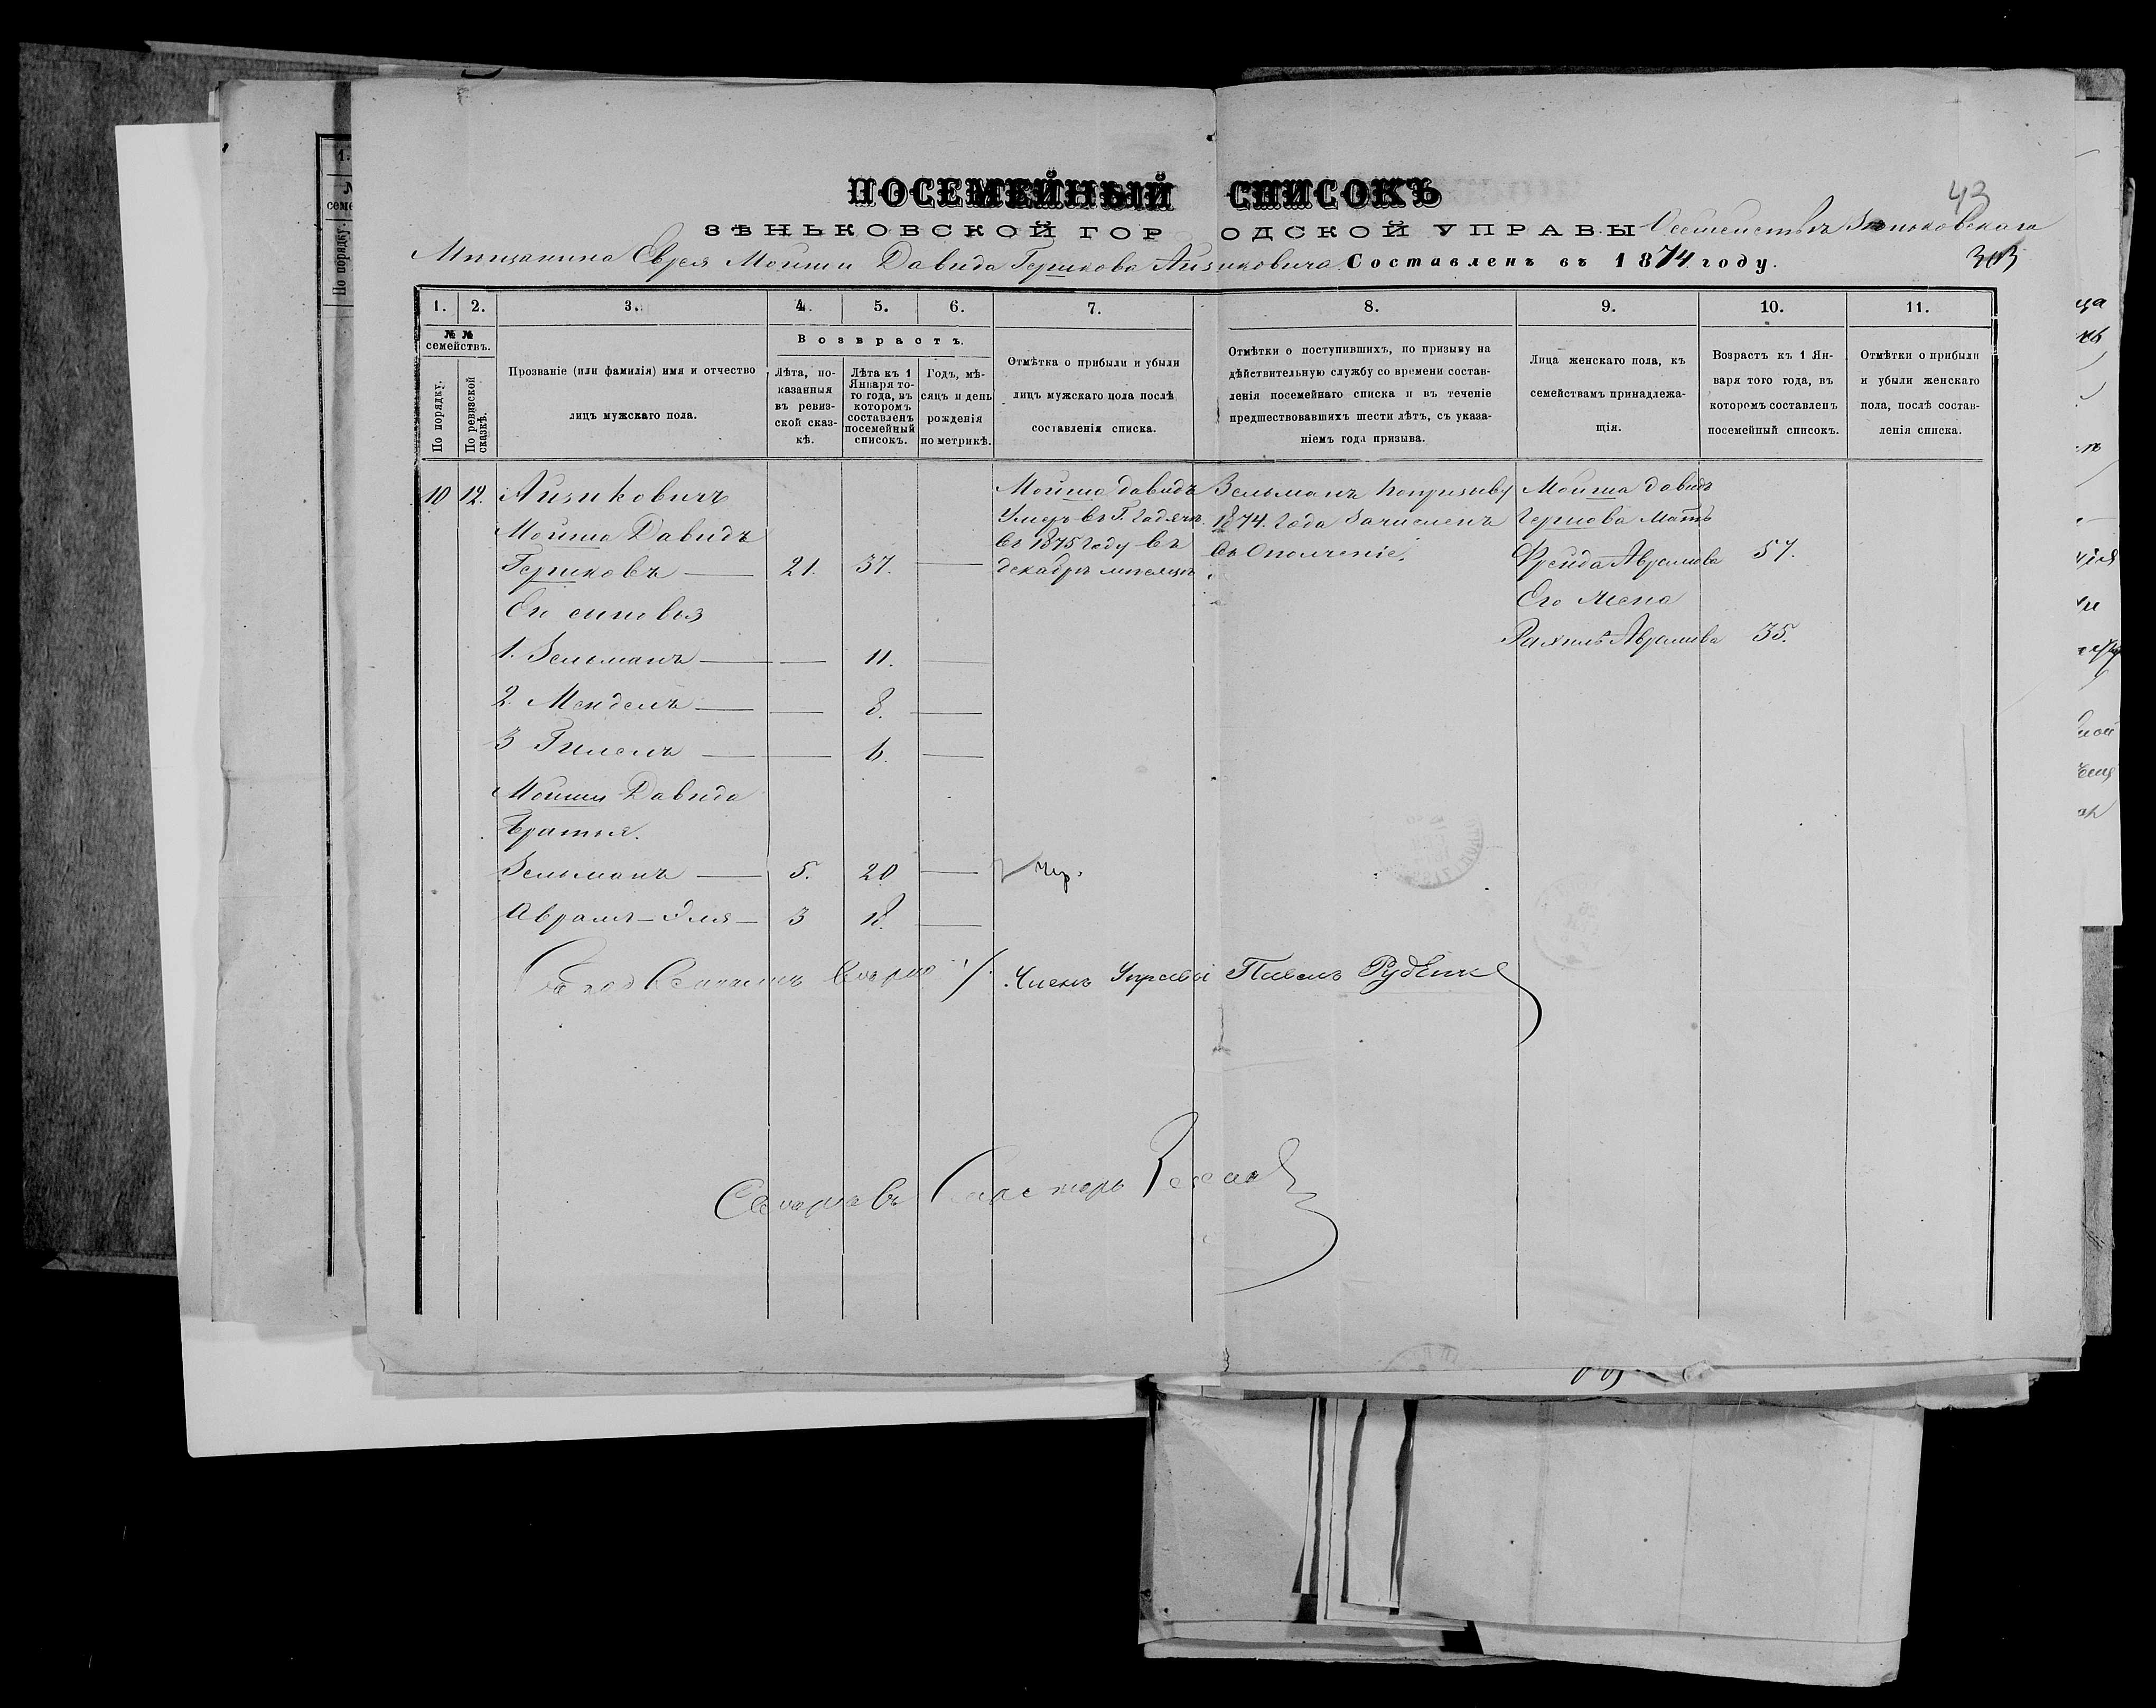 ПОСЕМЕЙНЫЙ СПИСОКЪ
43
ЗѢНЬКОВСКОЙ ГОРОДСКОЙ УПРАВЫ О семействѣ Зѣньковскаго
Мищанина Еврея Мойши Давида Гершкова Айзиковича. Составленъ въ 1874 году.
303
1. 2. 3. 4. 5. 6. 7. 8. 9. 10. 11.
№ № семействъ.
По порядку.
По ревизской сказкѣ.
Прозваніе (или фамилія) имя и отчество
лицъ мужскаго пола.
Возврастъ.
Лѣта, по-
казанныя
въ ревиз-
ской сказ-
кѣ.
Лѣта къ 1
Января то-
го года, въ
котором ъ
составленъ
посемейный
списокъ.
Годъ, мѣ-
сяцъ и день
рожденія
по метрикѣ.
Отмѣтка о прибыли и убыли
лицъ мужскаго пола послѣ
составленія списка.
Отмѣтки о поступившихъ, по призыву на
дѣйствительную службу со времени состав-
ленія посемейнаго списка и въ теченіе
предшествовавшихъ шести лѣтъ, съ указа-
ніемъ года призыва.
Лица женскаго пола, къ
семействамъ принадлежа-
щія.
Возрастъ къ 1 Ян-
варя того года, въ
которомъ составленъ
посемейный списокъ.
Отмѣтки о прибыли
и убыли женскаго
пола, послѣ состав-
ленія списка.
10 12. Айзиковичъ
Мойша Давидъ
Гершковъ — 21. 37. —
Его сыновья
1. Зельманъ — — 11. —
2. Мендель — — 8. —
3 Гилель — — 6. —
Мойши Давида
братья.
Зельманъ — 5. 20 —
Аврамъ-Эля — 3 18. —
Мойша Давидъ
Умеръ въ Г. Гадячѣ
въ 1875 году въ
декабрѣ мѣсяцѣ
Зельманъ по призыву
1874. Года Зачисленъ
въ Ополченіе.
Мойша Давидъ
Гершова Мать
Фрейда Аврамова 57.
Его Жена
Рахиль Аврамова 35.
Членъ Управы